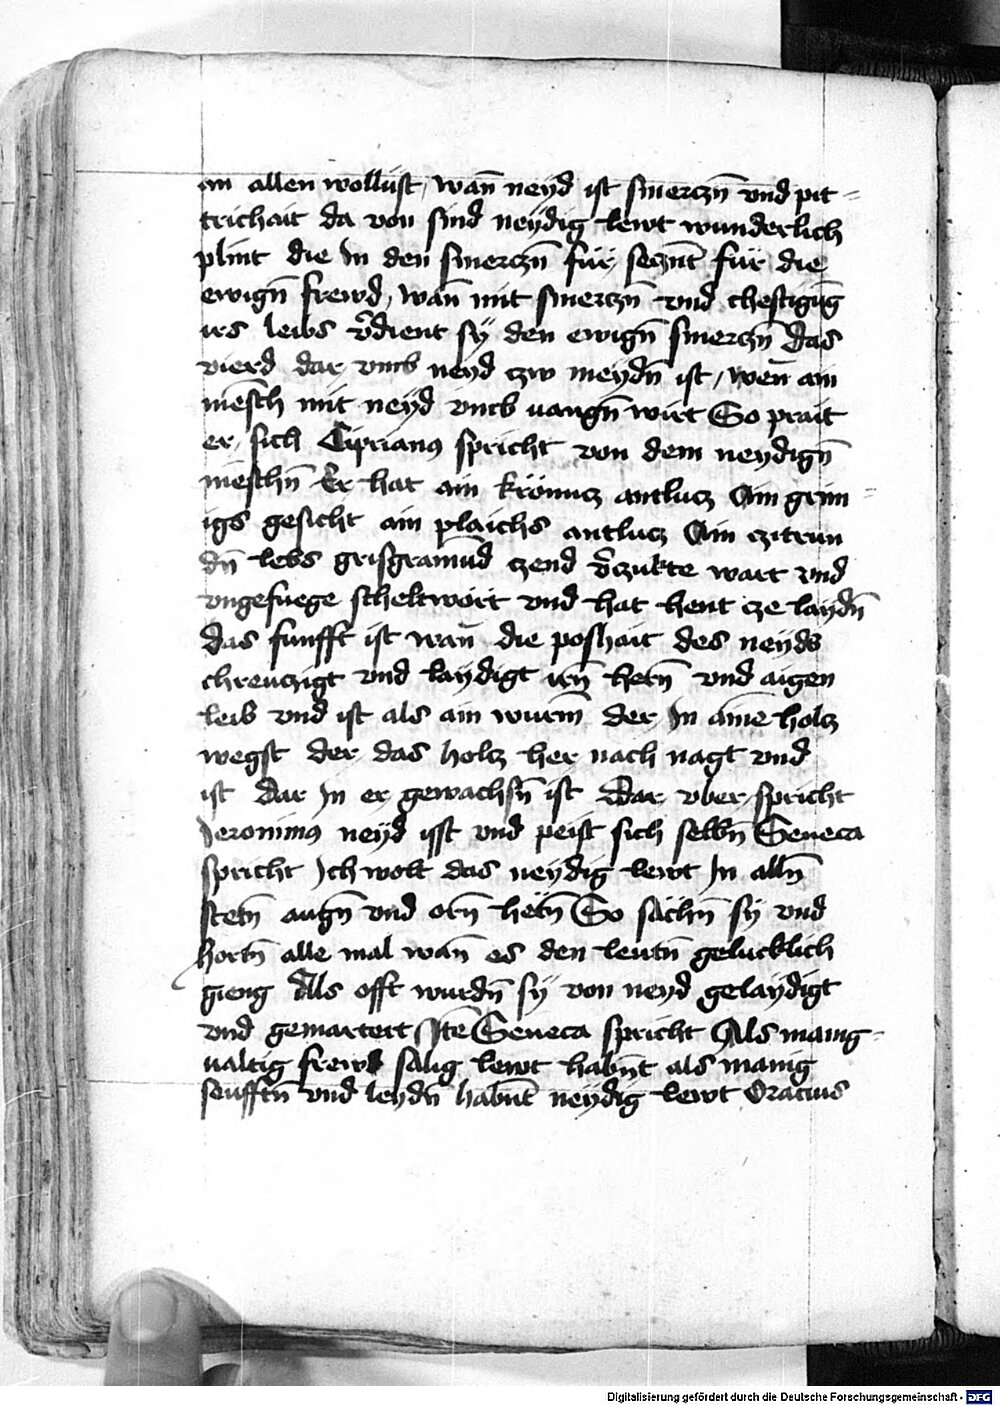 an allen wollust, wan̄ neyd ist smerczn̄ vnd pit=
trichait da von sind neydig lewt wunderlich
plint die In den smerczn̄ für seczn̄t für die
ewign̄ frewd, wan̄ mit smerczn̄ vnd chestigūg
irs leibs v̄dient sÿ den ewign̄ smerczn̄ das
vierd dar vmb neyd czw meydn̄ ist, wen̄ ain
mēsch mit neyd vmb uangn̄ wirt So prait
er sich Ciprianus spricht von dem neydign̄
mēschn̄ Er hat ain krönncz antlucz Ain grim=
igs gesicht ain plaichs antlucz Ain czitrun
dn̄ lebs grisgramūd czend v̄czukte wart vnd
vngefuege scheltwort vnd hat hent cze laydn̄
das funfft ist wan̄ die poshait des neyds
chreuczigt vnd laydigt irn̄ hern̄ vnd aigen
leib vnd ist als ain wurm̄ der In aīne holcz
wegst der das holcz her nach nagt vnd
ist dar In er gewachsn̄ ist Dar vber spricht
Ieronimus neyd isst vnd peist sich selbn̄ Seneca
spricht Ich wolt das neydig lewt In alln̄
stetn̄ augn̄ vnd orn̄ hëtn̄ So sächn̄ sÿ vnd
hortn̄ alle mal wan̄ es den leutn̄ gelucklich
gieng Als offt wurdn̄ sÿ von neyd gelaydigt
vnd gemartert Itē Seneca spricht Als manig=
ualtig frewd salig lewt habn̄t als manig
seufftn̄ vnd leydn̄ habn̄t neydig lewt Oracius
Digitalisierung gefördert durch die Deutsche Forschungsgemeinschaft - DFG